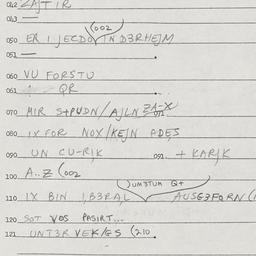 042 ZAJT IR
043 —
(002
050 ER I JECDO, IN D3RHEJM
051 —
060 VU FORSTU
061 QR
ZA-X
070 MIR S+PUDN/AJLN 071
080 IX FOR NOX/KEJN ADES
090 UN CU-RIK 091 + KARIK
100 A..Z (002
JUM3TUM Q+
110 IX BIN I,B3RAL, AUSG3FORN (1
120 SOT VOS PASIRT...
121 UNT3R VEK/ES (210